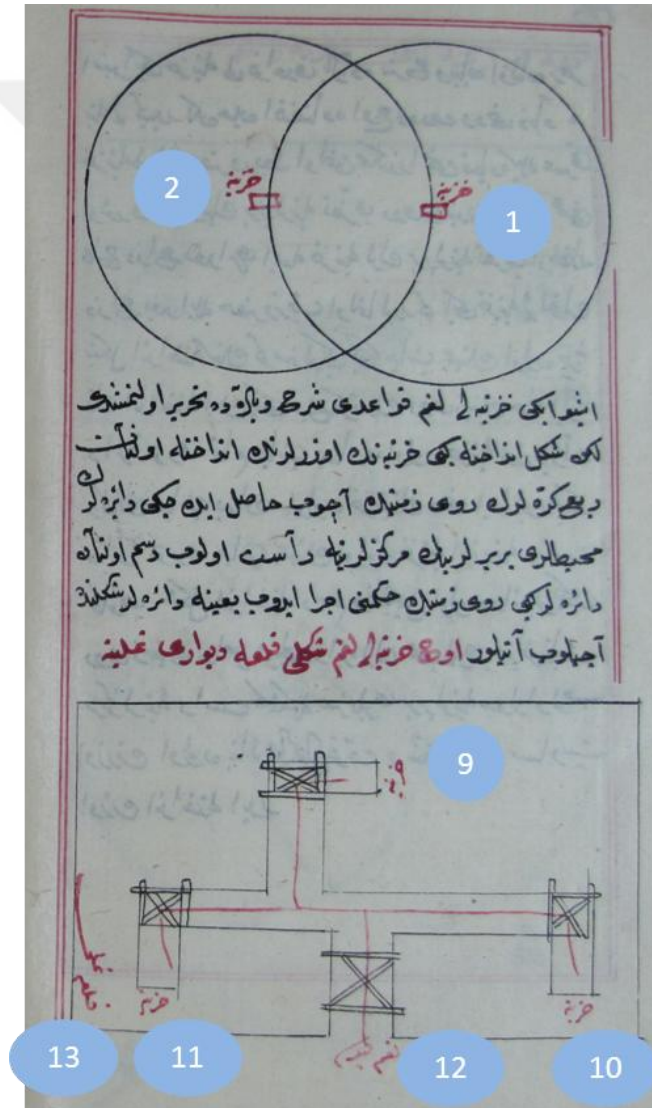 2
خزنه
خزنه
1
اشبو ایکی خزنه لی لغم قواعدی شرحی وبالاده تحریر اولنمشدی
لکن شکل انداخته کبی خزنه نك اوزرلرنك انداخته اولنان
ربع کره لرك روی زمینك آچوب حاصل ایدەجکی دائره لر
محیطلری بربرلرینك مرکزلرینه راست اولوب رسم اولنان
دائره لر کبی روی زمینك حکمنی اجرا ایدوب بعینه دائره لر شکلنده
آچیلوب آتیلور اوچ خزنه لی لغم شکلی قلعه دیواری تملینه
9
خزنه
خزنه
خزنه
لغم
13
11
12
10